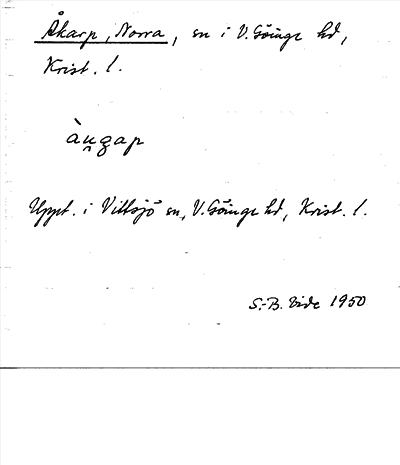 Åkarp, Norra, sn i V. Göinge hd,
Krist. l.
Uppt. i Vittsjö sn, V. Göinge hd, Krist. l.
S.-B. Vide 1950